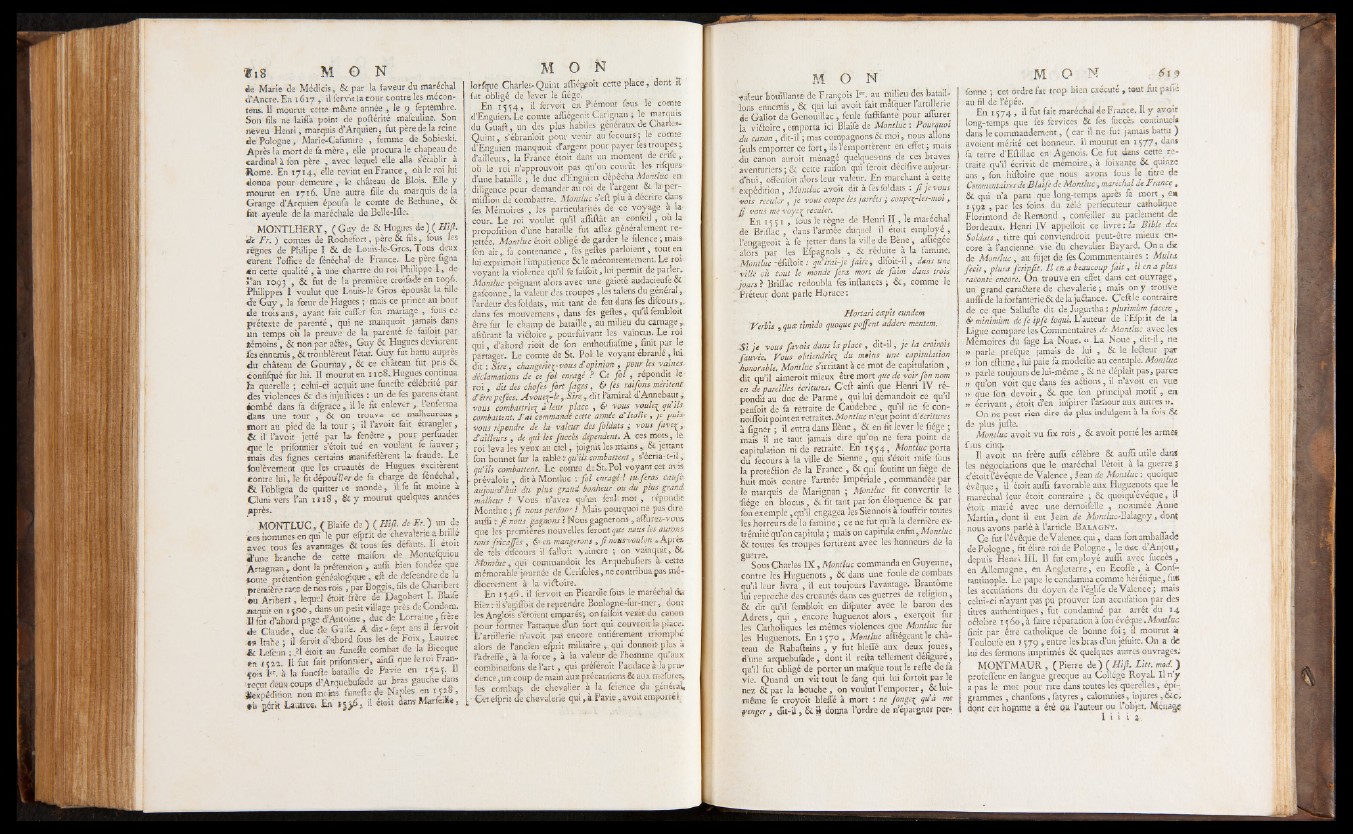 618 M O N
de Marie de Médicis, & par la faveur du maréchal
d'Ancre. En 1617, il servit la cour contre les mécon-
tens. Il mourut cette même année, le 9 septembre.
Son fils ne laissa point de postérité masculine. Son
neveu Henri, marquis d'Arquien, fut père de la reine
de Pologne, Marie-Casimire, femme de Sobieski.
Après la mort de sa mère, elle procura le chapeau de
cardinal à son père, avec lequel elle alla s'établir à
Rome. En 1714, elle revint en France, où le roi lui
donna pour demeure, le château de Blois. Elle y
mourut en 1716. Une autre fille du marquis de la
Grange d'Arquien épousa le comte de Bethune, &
fut ayeule de la maréchale de Belle-Isle.
MONTLHERY, (Guy de & Hugues de) (Hist.
de Fr.) comtes de Rochefort, père & fils, sous les
règnes de Philipe I & de Louis-le-Gros. Tous deux
eurent l'office de sénéchal de France. Le père signa
en cette qualité, à une chartre du roi Philippe I, de
l'an 1093, & fut de la première croisade en 1096.
Philippes I voulut que Louis-le Gros épousât la fille
de Guy, la sœur de Hugues; mais ce prince au bout
de trois ans, ayant fait casser son mariage, sous ce
prétexte de parenté, qui ne manquoit jamais dans
un temps où la preuve de la parenté se faisoit par
témoins, & non par actes, Guy & Hugues devinrent
ses ennemis, & troublèrent l'état. Guy fut battu auprès
du château de Gournay, & ce château fut pris &
confisqué sur lui. Il mourut en 1108. Hugues continua
la querelle; celui-ci acquit une funeste célébrité par
des violences & des injustices; un de ses parens étant
tombé dans sa disgrace, il le fit enlever, l'enferma
dans une tour, & on trouva ce malheureux,
mort au pied de la tour; il l'avoit fait étrangler,
& il l'avoit jetté par la fenêtre, pour persuader
que le prisonnier s'étoit tué en voulant se sauver;
mais des signes certains manifestèrent la fraude. Le
soulèvement que les cruautés de Hugues excitèrent
contre lui, le fit dépouiller de sa charge de sénéchal,
& l'obligea de quitter le monde, il se fit moine à
Cluni vers l'an 1118, & y mourut quelques années
après.
MONTLUC, (Blaise de) (Hist. de Fr.) un de
ces hommes en qui le pur esprit de chevalerie a brillé
avec tous ses avantages & tous ses défauts. Il étoit
d'une branche de cette maison de Montesquiou
Artagnan, dont la prétention, aussi bien fondée que
toute prétention généalogique, est de descendre de la
première race de nos rois, par Boggis, fils de Charibert
ou Aribert, lequel étoit frère de Dagobert I. Blaise
naquit en 1500, dans un petit village près de Condom.
Il fut d'abord page d'Antoine, duc de Lorraine, frère
de Claude, duc de Guise. A dix-sept ans il servoit
en Italie; il servit d'abord sous les de Foix, Lautrec
& Lescun; il étoit au funeste combat de la Bicoque
en 1522. Il fut fait prisonnier, ainsi que le roi Fran-
çois Ier. à la funeste bataille de Pavie en 1525. Il
reçut deux coups d'Arquebusede au bras gauche dans
l'expédition non moins funeste de Naples en 1528,
où périt Lautrec. En 1536, il étoit dans Marseille,
M O N
lorsque Charles-Quint assiégeoit cette place, dont il
fut obligé de lever le siège.
En 1554, il servoit en Piémont sous le comte
d'Enguien. Le comte assiégeoit Carignan; le marquis
du Guast, un des plus habiles généraux de Charles-
Quint, s'ébranloit pour venir au secours; le comte
d'Enguien manquoit d'argent pour payer ses troupes;
d'ailleurs, la France étoit dans un moment de crise,
où le roi n'approuvoit pas qu'on courût les risques
d'une bataille; le duc d'Enguien dépêcha Montluc en
diligence pour demander au roi de l'argent & la per-
mission de combattre. Montluc s'est plu à décrire dans
ses Mémoires, les particularités de ce voyage à la
cour. Le roi voulut qu'il assistât au conseil, où la
proposition d'une bataille fut assez généralement re-
jettée. Montluc étoit obligé de garder le silence; mais
son air, sa contenance, ses gestes parloient, tout en
lui exprimoit l'impatience & le mécontentement. Le roi
voyant la violence qu'il se faisoit, lui permit de parler.
Montluc peignant alors avec une gaieté audacieuse &
gasconne, la valeur des troupes, les talens du général,
l'ardeur des soldats, mit tant de feu dans ses discours,
dans ses mouvemens, dans ses gestes, qu'il sembloit
être sur le champ de bataille, au milieu du carnage,
assûrant la victoire, poursuivant les vaincus. Le roi
qui, d'abord rioit de son enthousiasme, finit par le
partager. Le comte de St. Pol le voyant ébranlé, lui
dit : Sire, changerlez-vous d'opinion, pour les vaines
déclamations de ce fol enragé? Ce fol, répondit le
roi, dit des choses fort sages, & ses raisons méritent
d'être pesées. Avouez-le, Sire, dit l'amiral d'Annebaut,
vous combattriez à leur place, & vous voulez qu'ils
combattent. J'ai commandé cette armée d'Italie, je puis
vous répondre de la valeur des soldats; vous savez,
d'ailleurs, de qui les succès dépendent. A ces mots, le
roi leva les yeux au ciel, joignit les mains, & jettant
son bonnet sur la table: qu'ils combattent, s'écria-t-il,
qu'ils combattent. Le comte de St. Pol voyant cet avis
prévaloir, dit à Montluc : fol enragé! tu seras cause
aujourd'hui du plus grand bonheur ou du plus grand
malheur! Vous n'avez qu'un seul mot, répondit
Montluc; si nous perdons! Mais pourquoi ne pas dire
aussi: si nous gagnons? Nous gagnerons, assurez-vous
que les premières nouvelles seront que nous les aurons
tous fricassés, & en mangerons, si nous voulon. Après
de tels discours il falloit vaincre; on vainquit, &
Montluc, qui commandoit les Arquebusiers à cette
mémorable journée de Cerisoles, ne contribua pas mé-
diocrement à la victoire.
En 1546, il servoit en Picardie sous le maréchal du
Biez: il s'agissoit de reprendre Boulogne-sur-mer, dont
les Anglois s'étoient emparés; on faisoit venir du canon
pour former l'attaque d'un fort qui couvroit la place.
L'artillerie n'avoit pas encore entiérement triomphé
alors de l'ancien esprit militaire, qui donnoit plus à
l'adresse, à la force, à la valeur de l'homme qu'aux
combinaisons de l'art, qui préféroit l'audace à la pru-
dence, un coup de main aux précautions & aux mesures,
les combats de chevalier à la science du général.
Cet esprit de chevalerie qui, à Pavie, avoit emporté la
M O N
valeur bouillante de François Ier. au milieu des batail-
lons ennemis, & qui lui avoit fait masquer l'artillerie
de Galiot de Genouillac, seule suffisante pour assurer
la victoire, emporta ici Blaise de Montluc : Pourquoi
du canon, dit-il; mes compagnons & moi, nous allons
seuls emporter ce fort, ils l'emportèrent en effet; mais
du canon auroit ménagé quelques-uns de ces braves
aventuriers; & cette raison qui seroit décisive aujour-
d'hui, offensoit alors leur valeur. En marchant à cette
expédition, Montluc avoit dit à ses soldats : si je vous
vois reculer, je vous coupe les jarrets; coupez-les-moi,
si vous me voyez reculer.
En 1551, sous le règne de Henri II, le maréchal
de Brissac, dans l'armée duquel il étoit employé,
l'engageoit à se jetter dans la ville de Bène, assiégée
alors par les Espagnols, & réduite à la famine.
Montluc résistoit : qu'irai-je faire, disoit-il, dans une
ville où tout le monde sera mort de faim dans trois
jours? Brissac redoubla ses instances, &, comme le
Préteur dont parle Horace:
Hortari cœpit eundem
Verbis, quæ timido quoque possent addere mentem.
Si je vous savois dans la place, dit-il, je la croirois
sauvée. Vous obtiendriez du moins une capitulation
honorable. Montluc s'irritant à ce mot de capitulation,
dit qu'il aimeroit mieux être mort que de voir son nom
en de pareilles écritures. C'est ainsi que Henri IV ré-
pondit au duc de Parme, qui lui demandoit ce qu'il
pensoit de sa retraite de Caudebec, qu'il ne se con-
noissoit point en retraites. Montluc n'eut point d'écritures
à signer; il entra dans Bène, & en fit lever le siège;
mais il ne faut jamais dire qu'on ne fera point de
capitulation ni de retraite. En 1554, Montluc porta
du secours à la ville de Sienne, qui s'étoit mise sous
la protection de la France, & qui soutint un siège de
huit mois contre l'armée Impériale, commandée par
le marquis de Marignan; Montluc fit convertir le
siège en blocus, & fit tant par son éloquence & par
son exemple, qu'il engagea les Siennois à souffrir toutes
les horreurs de la famine; ce ne fut qu'à la dernière ex-
trémité qu'on capitula; mais on capitula enfin, Montluc
& toutes ses troupes sortirent avec les honneurs de la
guerre.
Sous Charles IX, Montluc commanda en Guyenne,
contre les Huguenots, & dans une foule de combats
qu'il leur livra, il eut toujours l'avantage. Brantome
lui reproche des cruautés dans ces guerres de religion,
& dit qu'il sembloit en disputer avec le baron des
Adrets, qui, encore huguenot alors, exerçoit sur
les Catholiques les mêmes violences que Montluc sur
les Huguenots. En 1570, Montluc assiégeant le châ-
teau de Rabasteins, y fut blessé aux deux joues,
d'une arquebusade, dont il resta tellement défiguré,
qu'il fut obligé de porter un masque tout le reste de sa
vie. Quand on vit tout le sang qui lui sortoit par le
nez & par la bouche, on voulut l'emporter, & lui-
même se croyoit blessé à mort : ne songez qu'à me
venger, dit-il, & il donna l'ordre de n'épargner per-
M O N 619
sonne; cet ordre fut trop bien exécuté, tout fut passé
au fil de l'épée.
En 1574, il fut fait maréchal de France. Il y avoit
long-temps que ses services & ses succès continuels
dans le commandement, (car il ne fut jamais battu)
avoient mérité cet honneur. Il mourut en 1577, dans
sa terre d'Estillac en Agenois. Ce fut dans cette re-
traite qu'il écrivit de mémoire, à soixante & quinze
ans, son histoire que nous avons sous le titre de
Commentaires de Blaise de Montluc, maréchal de France,
& qui n'a paru que long-temps après sa mort, en
1592, par les soins du zélé persécuteur catholique
Florimond de Remond, conseiller au parlement de
Bordeaux. Henri IV appelloit ce livre : la Bible des
Soldats, titre qui conviendroit peut-être mieux en-
core à l'ancienne vie du chevalier Bayard. On a dit
de Montluc, au sujet de ses Commentaires : Multa
fecit, plura scripsit. Il en a beaucoup fait, il en a plus
raconté encore. On trouve en effet dans cet ouvrage,
un grand caractère de chevalerie; mais on y trouve
aussi de la forfanterie & de la jactance. C'est le contraire
de ce que Salluste dit de Jugurtha: plurimùm facere,
& minimùm de se ipse loqui. L'auteur de l'Esprit de la
Ligue compare les Commentaires de Montluc avec les
Mémoires du sage La Noue. « La Noue, dit-il, ne
» parle presque jamais de lui, & le lecteur par
» son estime, lui paie sa modestie au centuple. Montluc
» parle toujours de lui-même, & ne déplait pas, parce
» qu'on voit que dans ses actions, il n'avoit en vue
» que son devoir, & que son principal motif, en
» écrivant, étoit d'en inspirer l'amour aux autres ».
On ne peut rien dire de plus indulgent à la fois &
de plus juste.
Montluc avoit vu six rois, & avoit porté les armes
sous cinq.
Il avoit un frère aussi célèbre & aussi utile dans
les négociations que le maréchal l'étoit à la guerre;
c'étoit l'évêque de Valence, Jean de Montluc: quoique
évêque, il étoit aussi favorable aux Huguenots que le
maréchal leur étoit contraire; & quoiqu'évêque, il
étoit marié avec une demoiselle, nommée Anne
Martin, dont il eut Jean de Montluc-Balagny, dont
nous avons parlé à l'article BALAGNY.
Ce fut l'évêque de Valence qui, dans son ambassade
de Pologne, fit élire roi de Pologne, le duc d'Anjou,
depuis Henri III. Il fut employé aussi avec succès,
en Allemagne, en Angleterre, en Ecosse, à Cons-
tantinople. Le pape le condamna comme hérétique, sur
les accusations du doyen de l'église de Valence; mais
celui-ci n'ayant pas pu prouver son accusation par des
titres authentiques, fut condamné par arrêt du 14
octobre 1560, à faire réparation à son évêque. Montluc
finit par être catholique de bonne foi; il mourut à
Toulouse en 1579, entre les bras d'un jésuite. On a de
lui des sermons imprimés & quelques autres ouvrages.
MONTMAUR, (Pierre de) (Hist. Litt. mod.)
professeur en langue grecque au Collège Royal. Il n'y
a pas le mot pour rire dans toutes les querelles, épi-
grammes, chansons, satyres, calomnies, injures, &c.
dont cet homme a été ou l'auteur ou l'objet. Ménage
I i i i 2